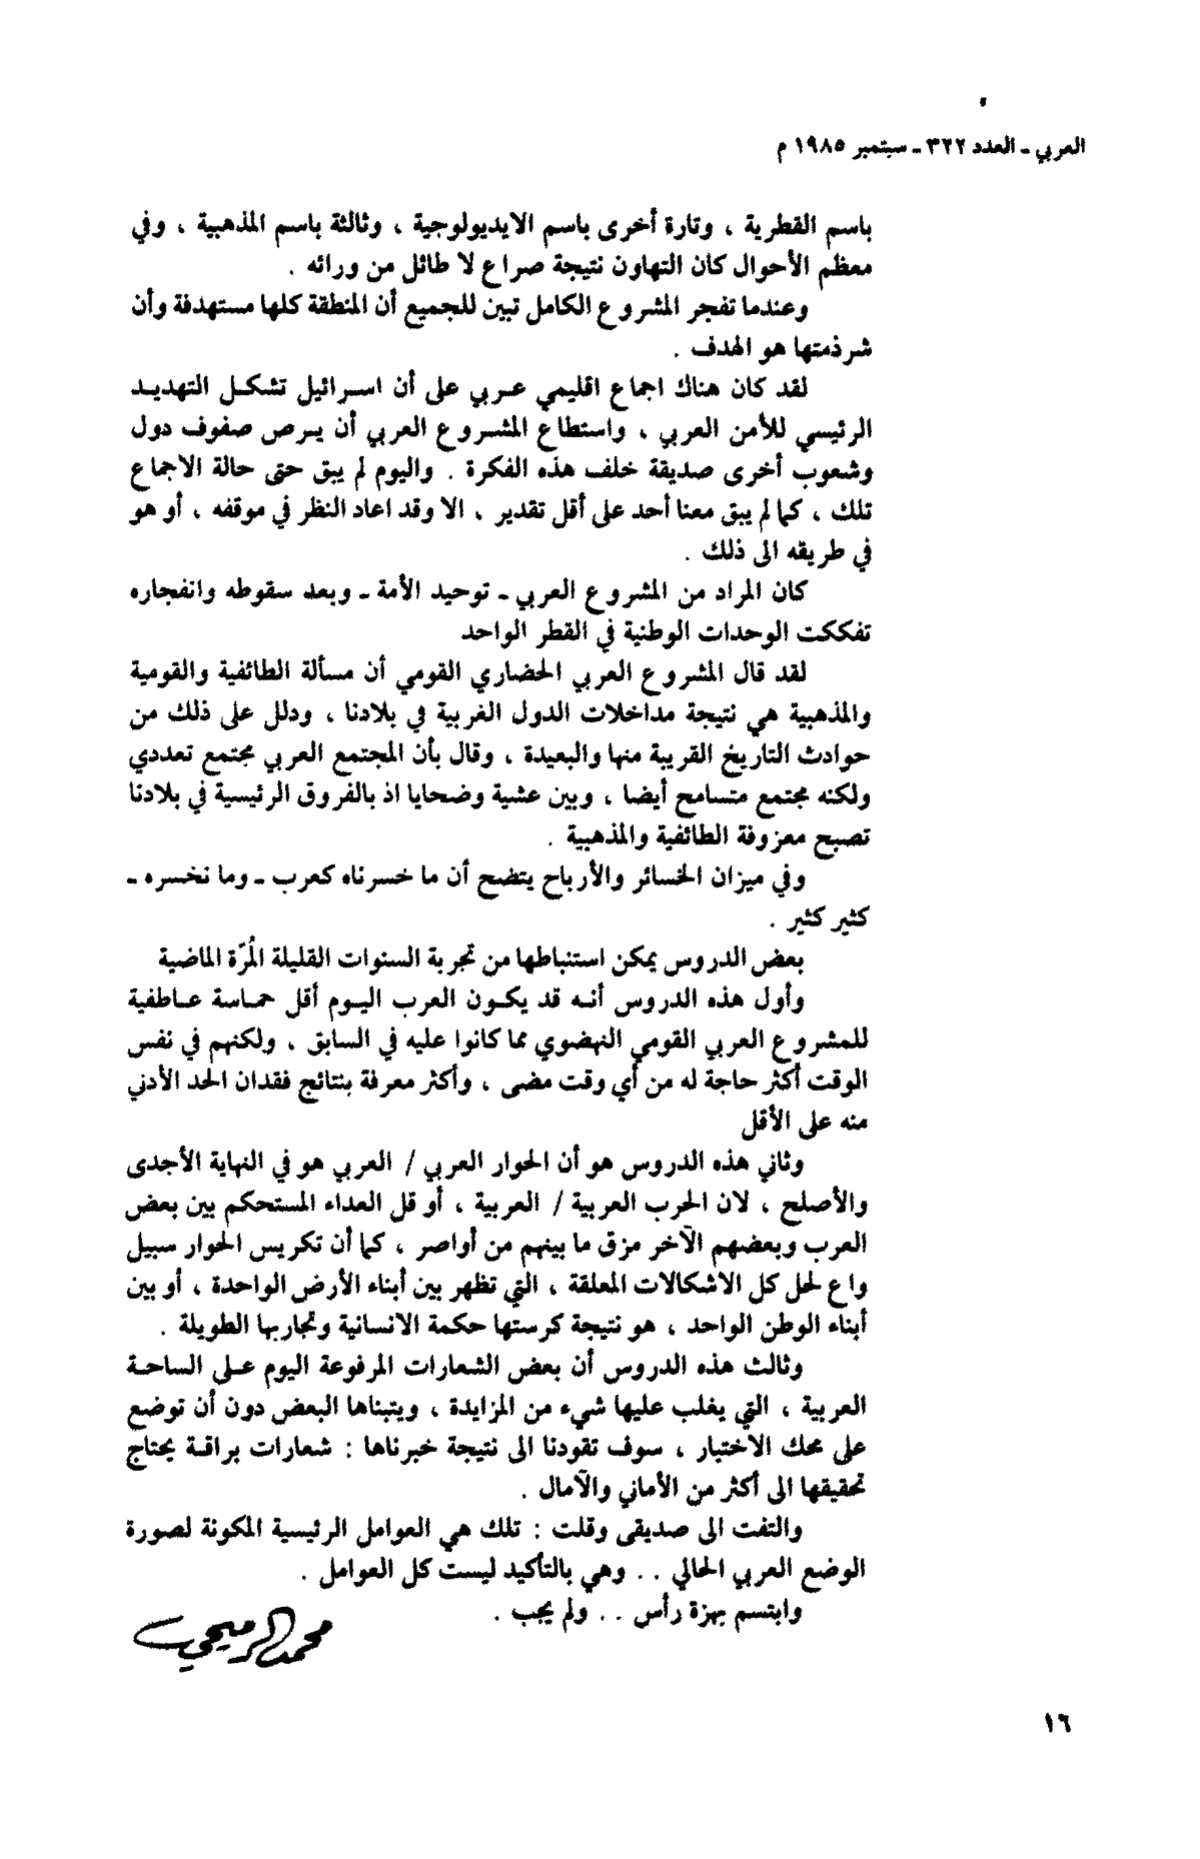 العربي ـ العدد ٣٢٢ ـ سبتمبر ١٩٨٥ م
باسم القطرية ، وتارة أخرى باسم الايديولوجية ، وثالثة باسم المذهبية ، وفي
معظم الأحوال كان التهاون نتيجة صراع لا طائل من ورائه .
وعندما تفجر المشروع الكامل تبين للجميع أن المنطقة كلها مستهدفة وأن
شرذمتها هو الهدف .
لقد كان هناك اجماع اقليمي عربي على أن اسرائيل تشكل التهديد
الرئيسي للأمن العربي ، واستطاع المشروع العربي أن يرص صفوف دول
وشعوب أخرى صديقة خلف هذه الفكرة . واليوم لم يبق حتى حالة الاجماع
تلك ، كما لم يبق معنا أحد على أقل تقدير ، الا وقد اعاد النظر في موقفه ، أو هو
في طريقه الى ذلك .
كان المراد من المشروع العربي ـ توحيد الأمة ـ وبعد سقوطه وانفجاره
تفككت الوحدات الوطنية في القطر الواحد
لقد قال المشروع العربي الحضاري القومي أن مسألة الطائفية والقومية
والمذهبية هي نتيجة مداخلات الدول الغربية في بلادنا ، ودلل على ذلك من
حوادث التاريخ القريبة منها والبعيدة ، وقال بأن المجتمع العربي مجتمع تعددي
ولكنه مجتمع متسامح أيضا ، وبين عشية وضحايا اذ بالفروق الرئيسية في بلادنا
تصبح معزوفة الطائفية والمذهبية .
وفي ميزان الخسائر والأرباح يتضح أن ما خسرناه كعرب ـ وما نخسره ـ
كثير كثير .
بعض الدروس يمكن استنباطها من تجربة السنوات القليلة المُرّة الماضية
وأول هذه الدروس أنه قد يكون العرب اليوم أقل حماسة عاطفية
للمشروع العربي القومي النهضوي مما كانوا عليه في السابق ، ولكنهم في نفس
الوقت أكثر حاجة له من أي وقت مضى ، وأكثر معرفة بنتائج فقدان الحد الأدنى
منه على الأقل
وثاني هذه الدروس هو أن الحوار العربي / العربي هو في النهاية الأجدى
والأصلح ، لان الحرب العربية / العربية ، أو قل العداء المستحكم بين بعض
العرب وبعضهم الآخر مزق ما بينهم من أواصر ، كما أن تكريس الحوار سبيل
واع لحل كل الاشكالات المعلقة ، التي تظهر بين أبناء الأرض الواحدة ، أو بين
أبناء الوطن الواحد ، هو نتيجة كرستها حكمة الانسانية وتجاربها الطويلة .
وثالث هذه الدروس أن بعض الشعارات المرفوعة اليوم على الساحة
العربية ، التي يغلب عليها شيء من المزايدة ، ويتبناها البعض دون أن توضع
على محك الاختبار ، سوف تقودنا الى نتيجة خبرناها : شعارات براقة يحتاج
تحقيقها الى أكثر من الأماني والآمال .
والتفت الى صديقى وقلت : تلك هي العوامل الرئيسية المكونة لصورة
الوضع العربي الحالي . . وهي بالتأكيد ليست كل العوامل .
وابتسم بهزة رأس . . ولم يجب .
محمد الرميحي
١٦